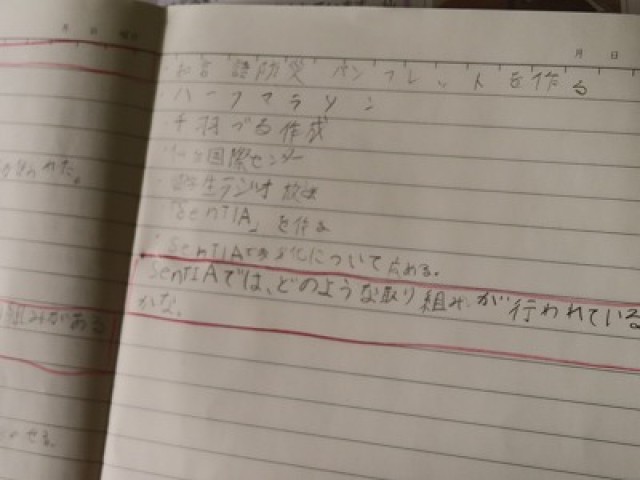 月 日
月 日
言語防災パンフレットを作る
ハーフマラソン
千羽づる作成
国際センター
ラジオ放
「SenTIA」を作
SenTIAで 化について広める。
SenTIAでは、どのような取り組みが行われている
かな。
われた。
組みがある
せる。